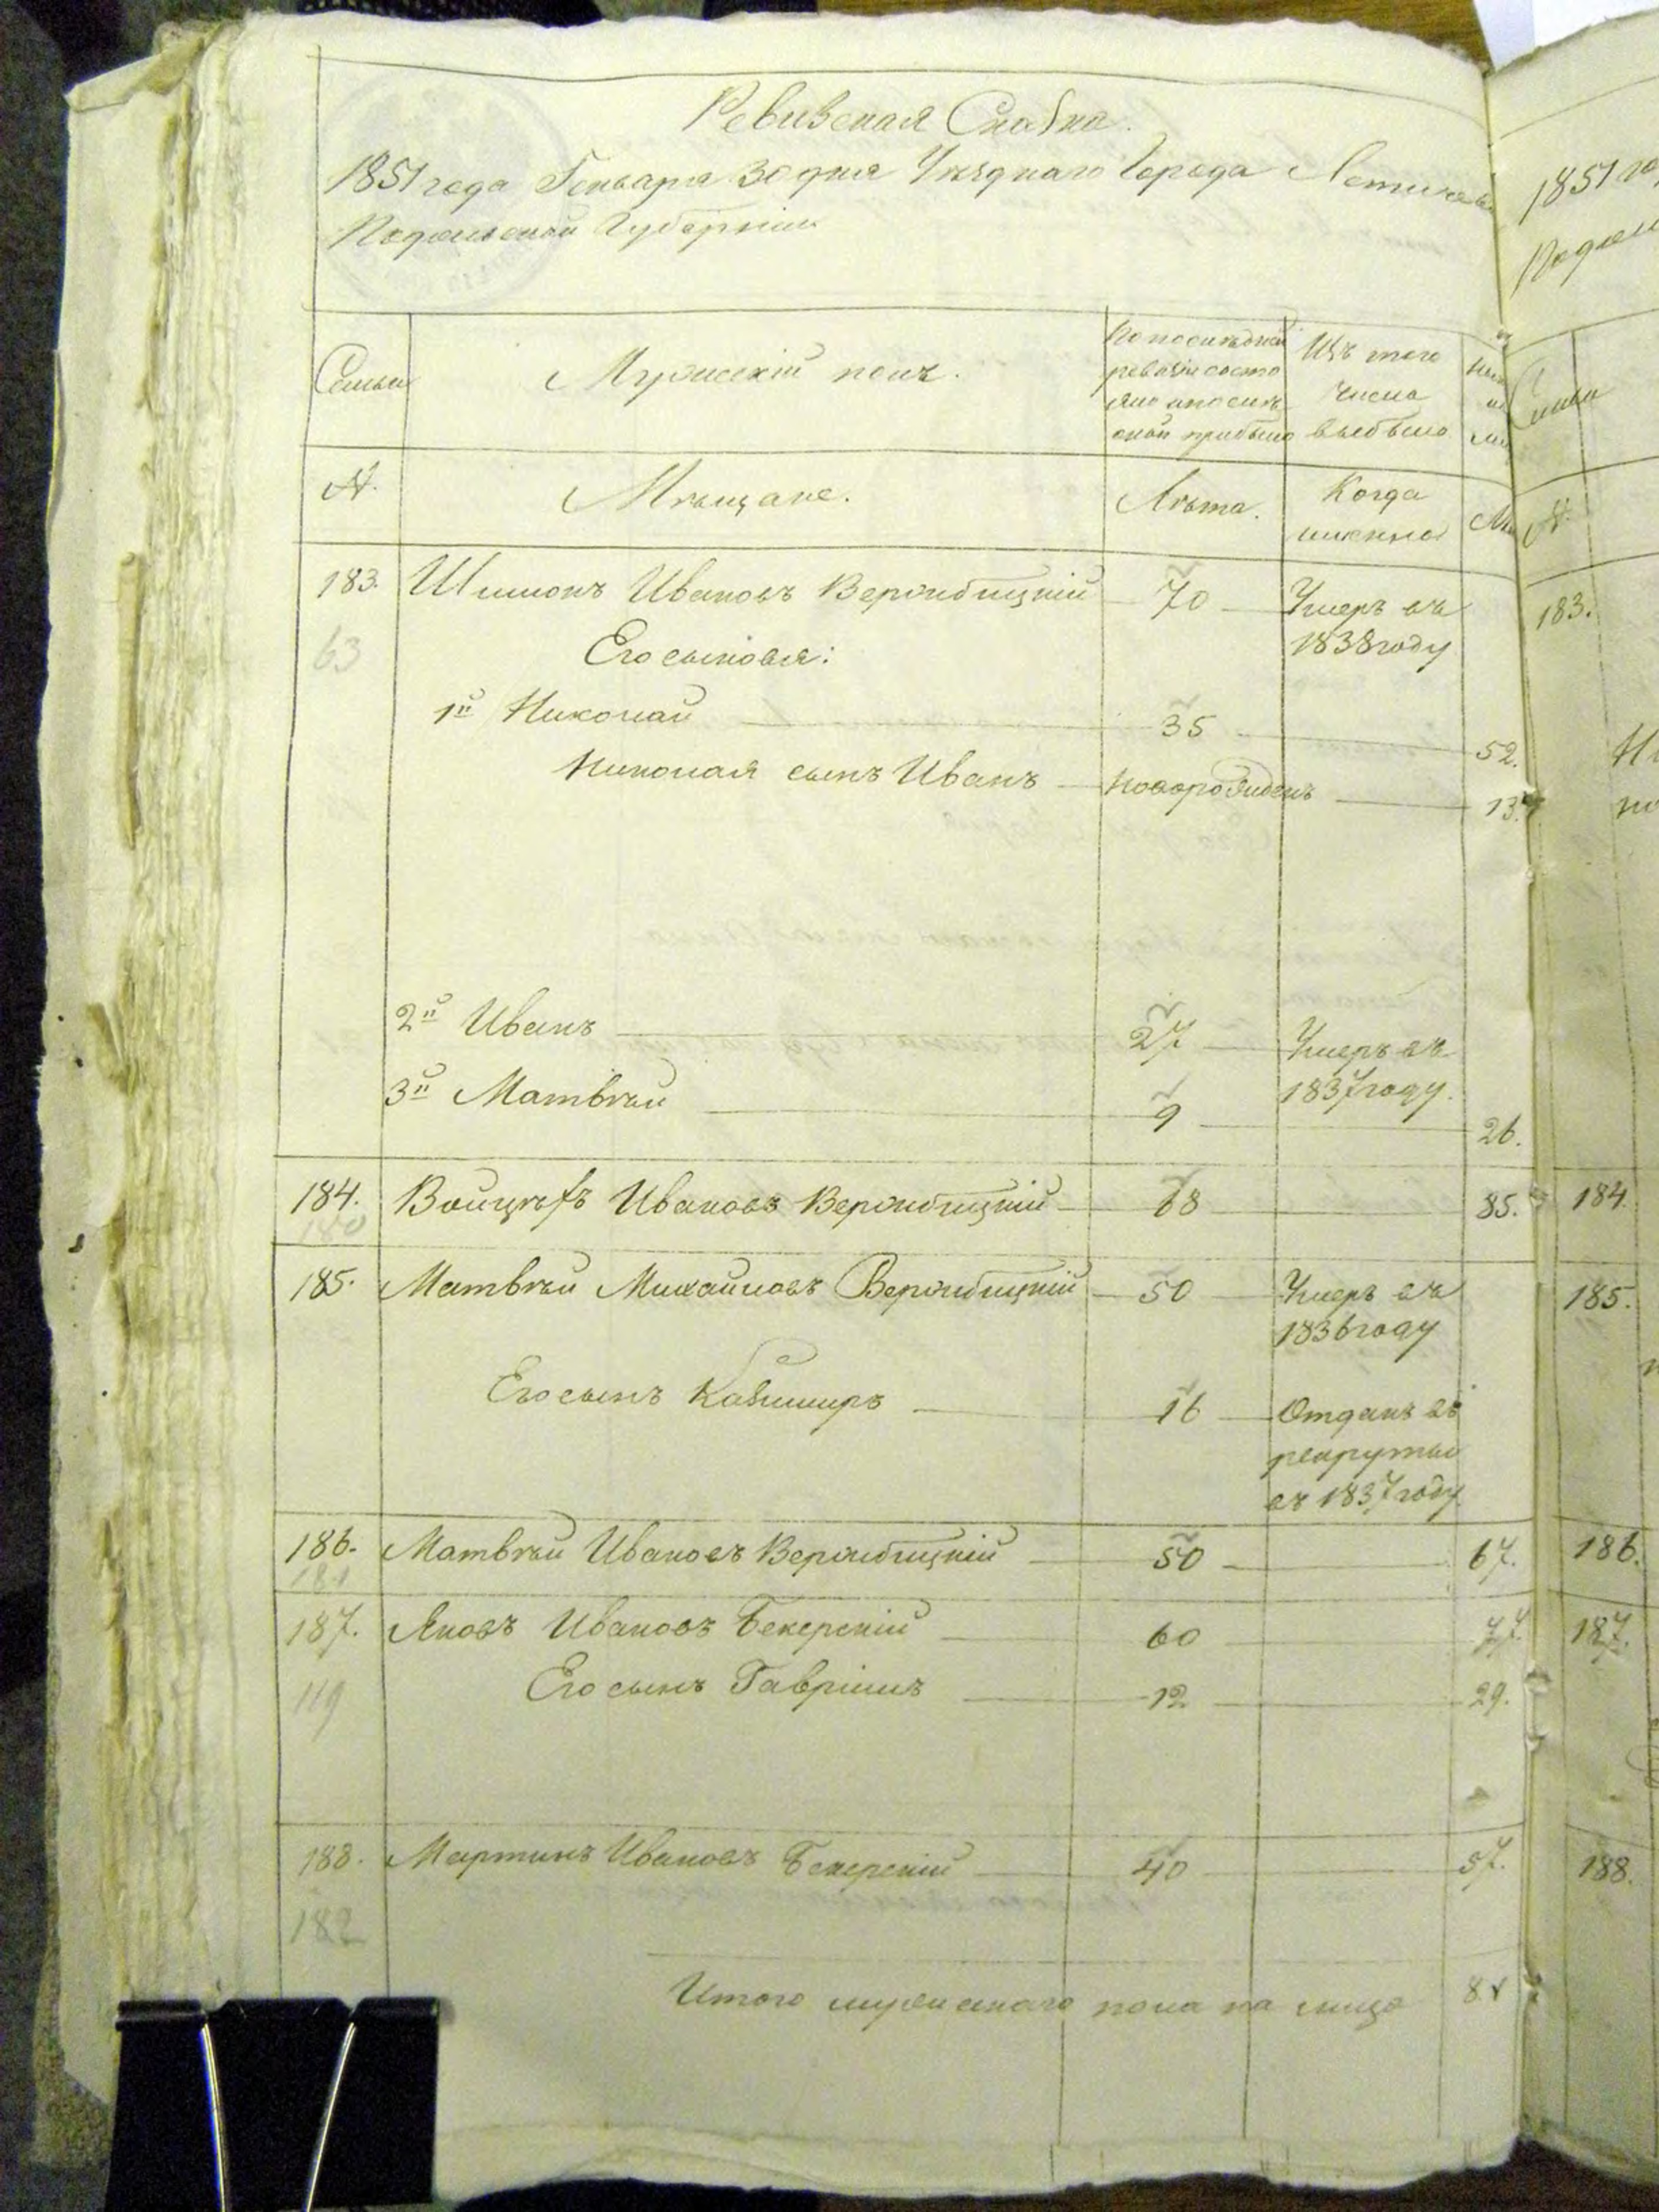 Ревизская Сказка.
1851 года Генваря 30 дня Уѣзднаго Города Летичева
Подольской Губерніи
Семьи
Мужескій полъ.
По послѣдней ревизіи состояло и послѣ оной прибыло
Изъ того числа выбыло
№.
Мѣщане.
Лѣта.
Когда именно
183. Шимонъ Ивановъ Вержбицкій 70 Умеръ въ
1838 году
63 Его сыновья:
1й Николай 35 52.
Николая сынъ Иванъ новорожденъ 13.
2й Иванъ 27 Умеръ въ
1837 году.
3й Матвѣй 9 26.
184. Войцѣхъ Ивановъ Вержбицкій 68 85.
180
185. Матвѣй Михайловъ Вержбицкій 50 Умеръ въ
1836 году
Его сынъ Казимиръ 16 Отданъ въ
рекруты
въ 1837 году
186. Матвѣй Ивановъ Вержбицкій 50 67.
181
187. Яковъ Ивановъ Бекерскій 60 77.
119 Его сынъ Гавріилъ 12 29.
188. Мартинъ Ивановъ Бекерскій 40 57.
182
Итого мужескаго пола на лицо 8
1851 го
Подол
Семьи
№
183.
184.
185.
186.
187.
188.